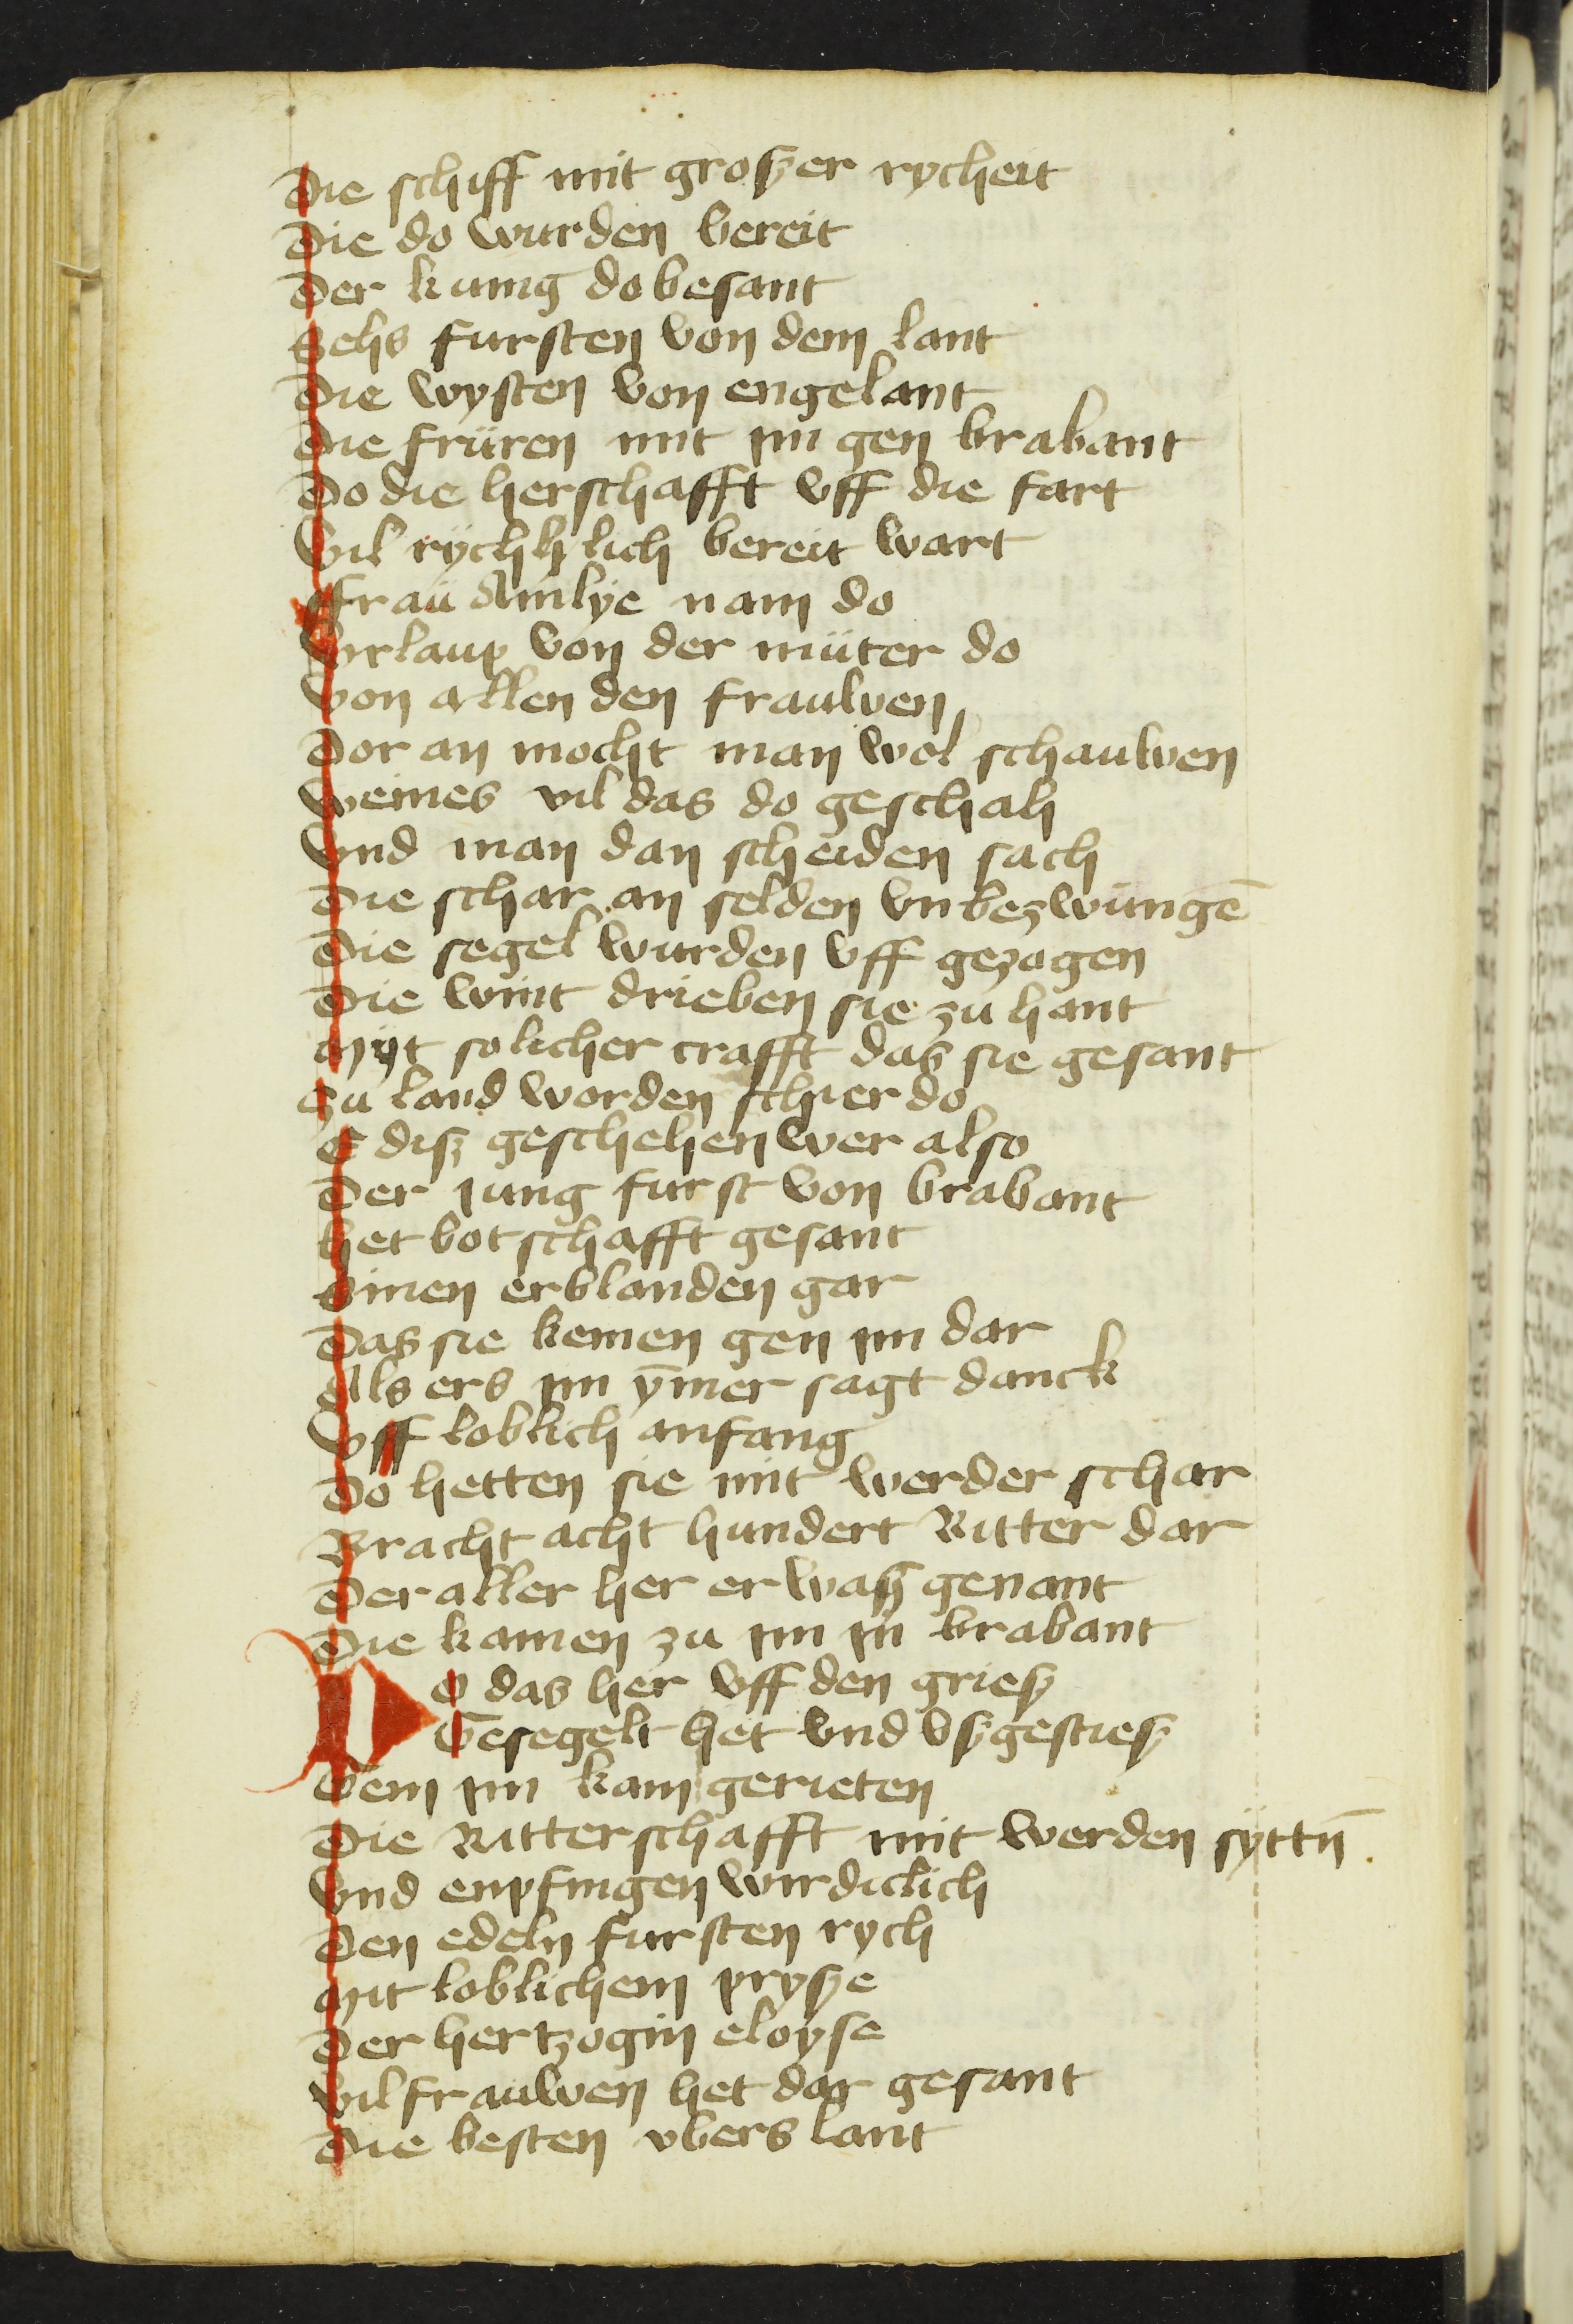 Die schiff mit groszer rycheit
Die do wurden bereit
Der kunig do besant
Sehs fursten von dem lant
Die wysten von engelant
Die früren mit ym gen brabant
Do die herschafft vff die fart
Vil rychlich bereit wart
Frau Amlye nam do
Vrlaup von der müter do
Von allen den frauwen
Dor an mocht man wol schauwen
Weines vil das do geschah
Vnd man dan scheiden sach
Die schar an selden vnbezwungē
Die segel wurden vff gezogen
Die wint drieben sie zu hant
Myt solicher crafft das sie gesant
Zu land worden schier do
E disz geschehen wer also
Der jung furst von brabant
Het botschafft gesant
Sinen erblanden gar
Das sie kemen gen ym dar
Als ers ym ȳmer sagt danck
Vff loblich anfang
Do hetten sie mit werder schar
Bracht acht hundert Ritter dar
Der aller her er wasz genant
Die kamen zu ym yn brabant
Do das her vff den griesz
Gesegelt het vnd vszgestiesz
Gem ym kam gerieten
Die Ritterschafft mit werden syttn̄.
Vnd enpfingen wirdiclich
Den edeln fursten rych
Mit loblichem prysze
Der hertzogin eloyse
Vil frauwen het dar gesant
Die besten vbers lant